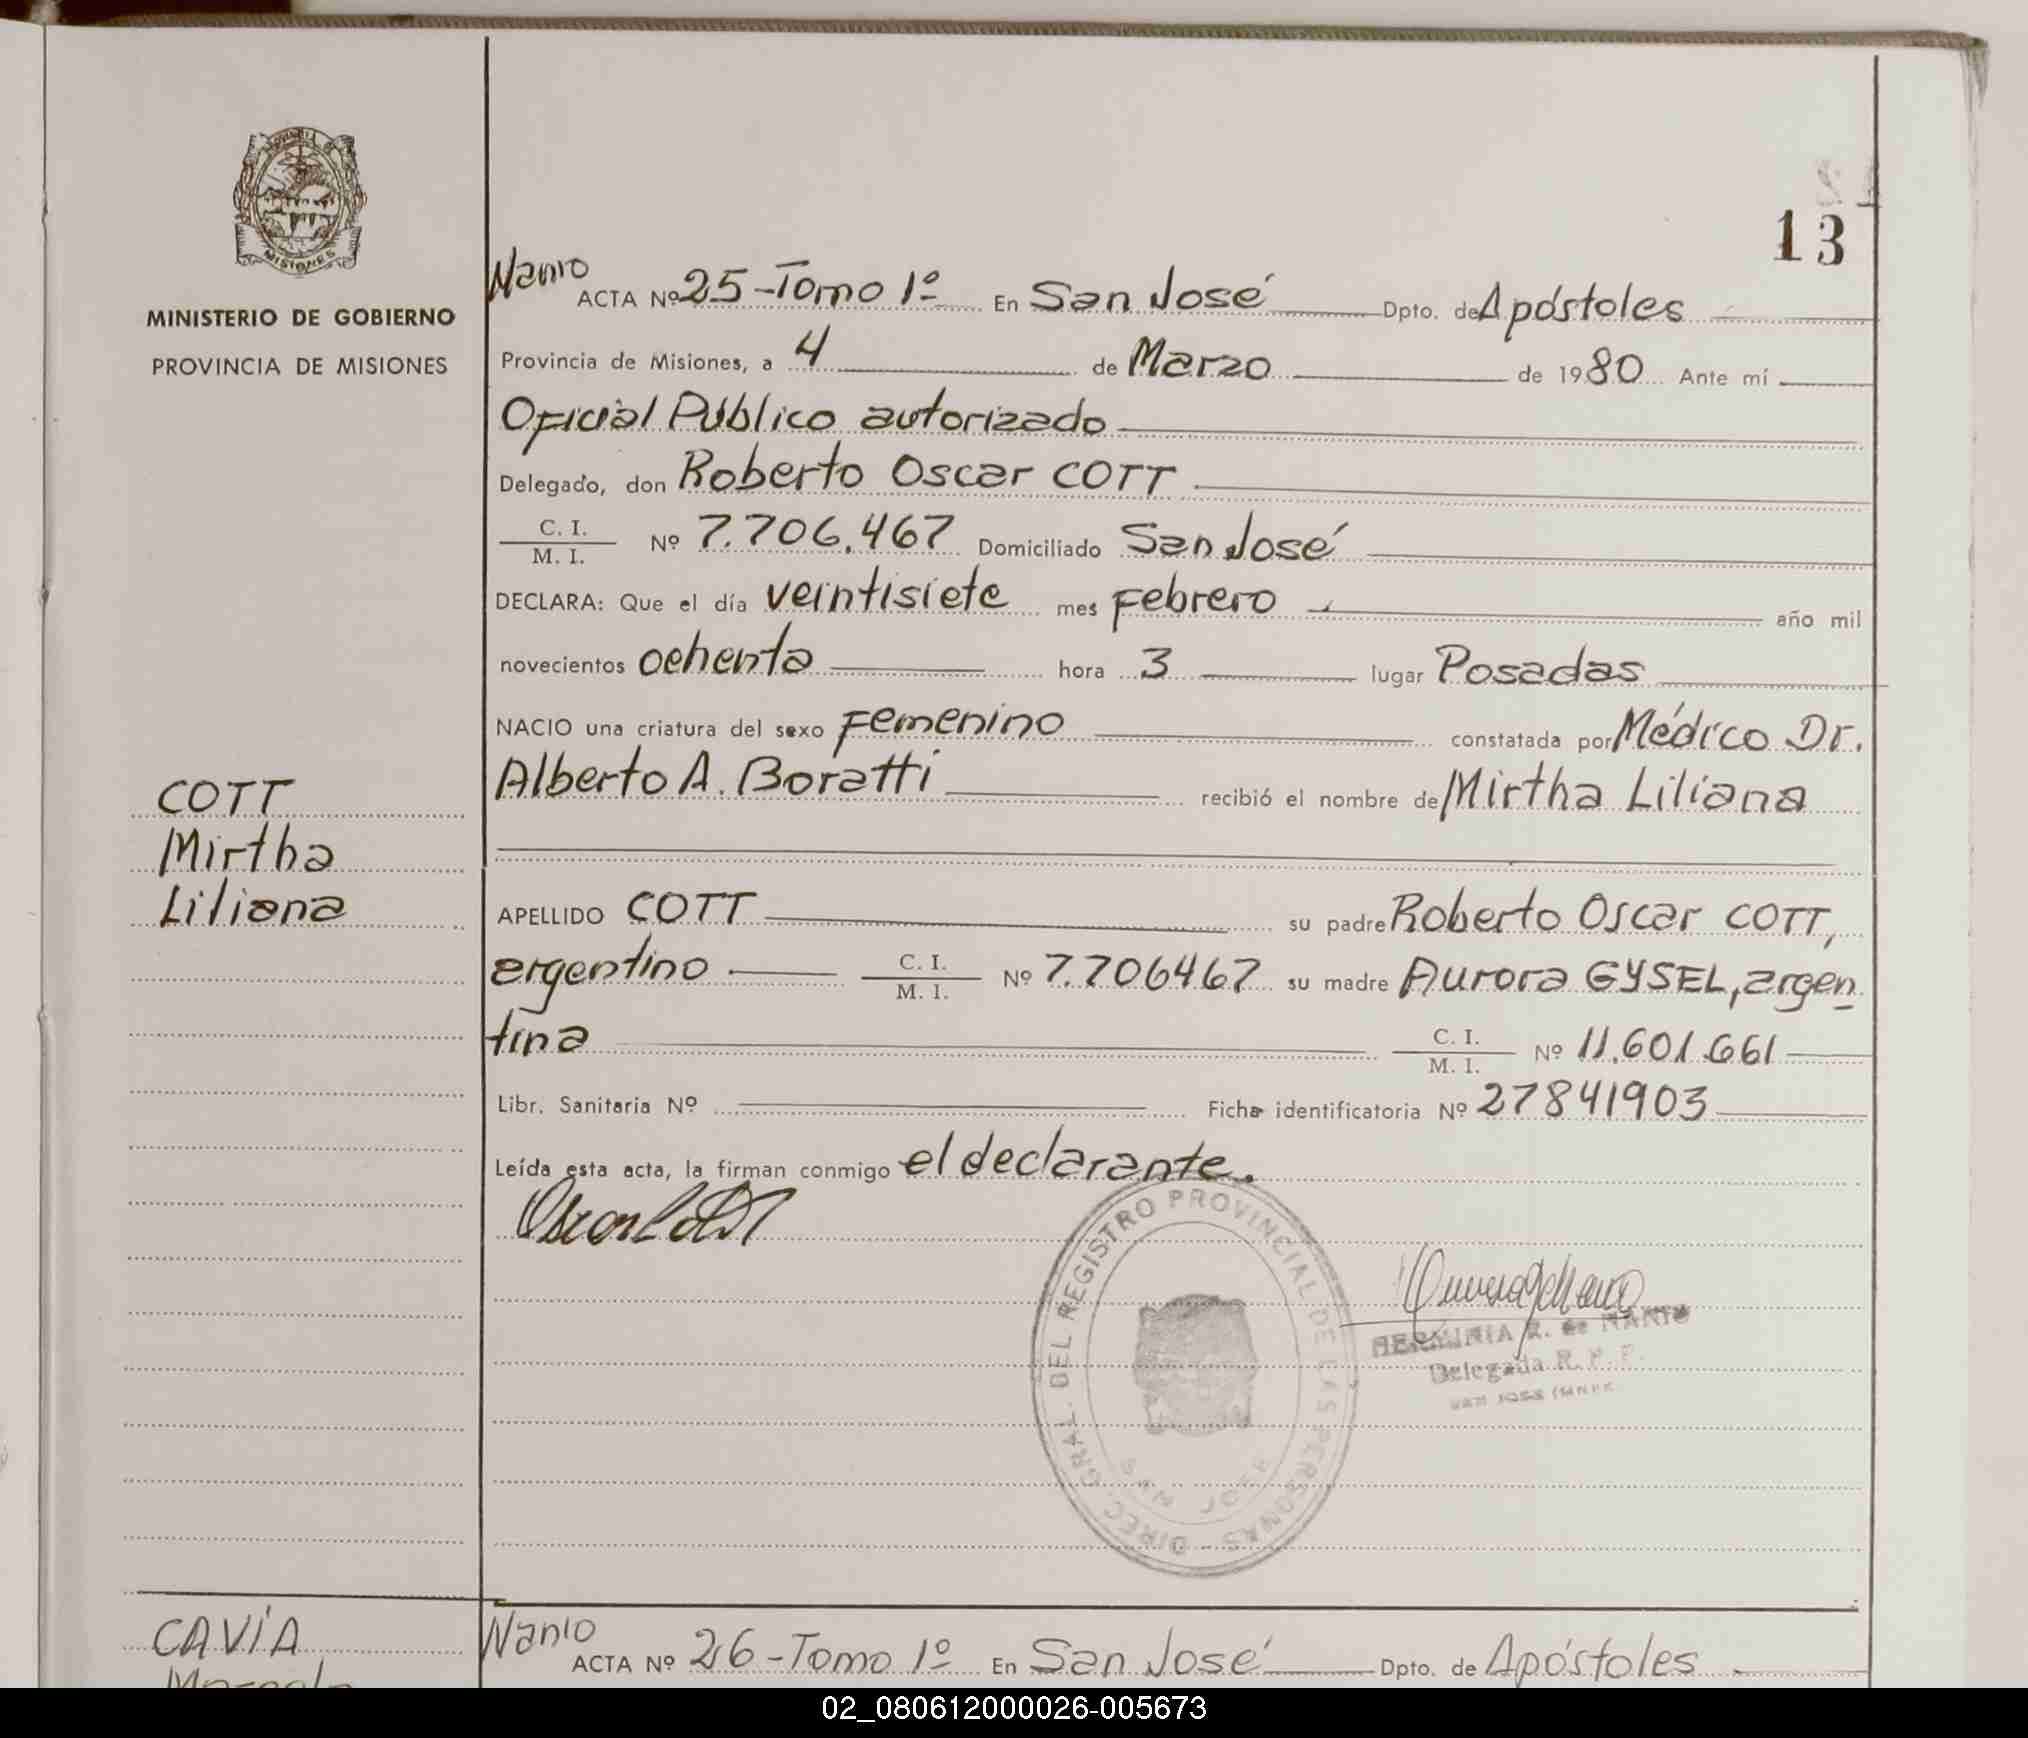 13
MISIONES
MINISTERIO DE GOBIERNO
PROVINCIA DE MISIONES
COTT
Mirtha
Liliana
Nanio
ACTA Nº 25 - Tomo 1º En San José Dpto. de Apóstoles
Provincia de Misiones, a 4 de Marzo de 1980 Ante mí
Oficial Público autorizado
Delegado, don Roberto Oscar COTT
C. I.
M. I. Nº 7.706.467 Domiciliado San José
DECLARA: Que el día veintisiete mes Febrero año mil
novecientos ochenta hora 3 lugar Posadas
NACIO una criatura del sexo Femenino constatada por Médico Dr.
Alberto A. Boratti recibió el nombre de Mirtha Liliana
APELLIDO COTT su padre Roberto Oscar COTT,
argentino C. I. M. I. Nº 7.706467 su madre Aurora GYSEL, argen
tina C. I. M. I. Nº 11.601.661
Libr. Sanitaria Nº Ficha identificatoria Nº 27841903
Leída esta acta, la firman conmigo el declarante.
DIREC. GRAL. DEL REGISTRO PROVINCIAL DE LAS PERSONAS
SAN JOSE
HERMINIA R. de NANIO
Delegada R. P. P.
SAN JOSE
CAVIA
Nanio
ACTA Nº 26 - Tomo 1º En San José Dpto. de Apóstoles
02_080612000026-005673